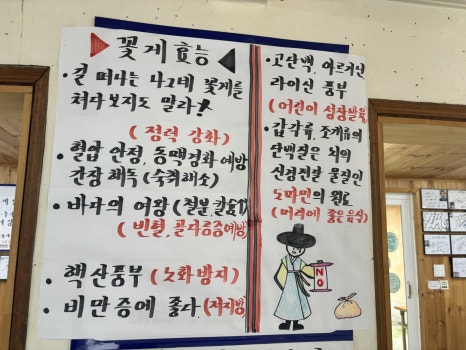 꽃게효능
• 길 떠나는 나그네 꽃게를
쳐다보지도 말라!
(정력 강화)
• 혈압 안정, 동맥경화 예방
간장 해독 (숙취해소)
• 바다의 어왕 (철분, 칼슘
(빈혈, 골다공증예방)
• 핵산풍부 (노화방지)
• 비만증에 좋다. (저지방)
• 고단백, 아르기닌
라이신 풍부
(어린이 성장발육)
• 갑각류, 조개류의
단백질은 뇌의
신경전달 물질인
도파민의 원료
(머리에 좋은음식)
NO